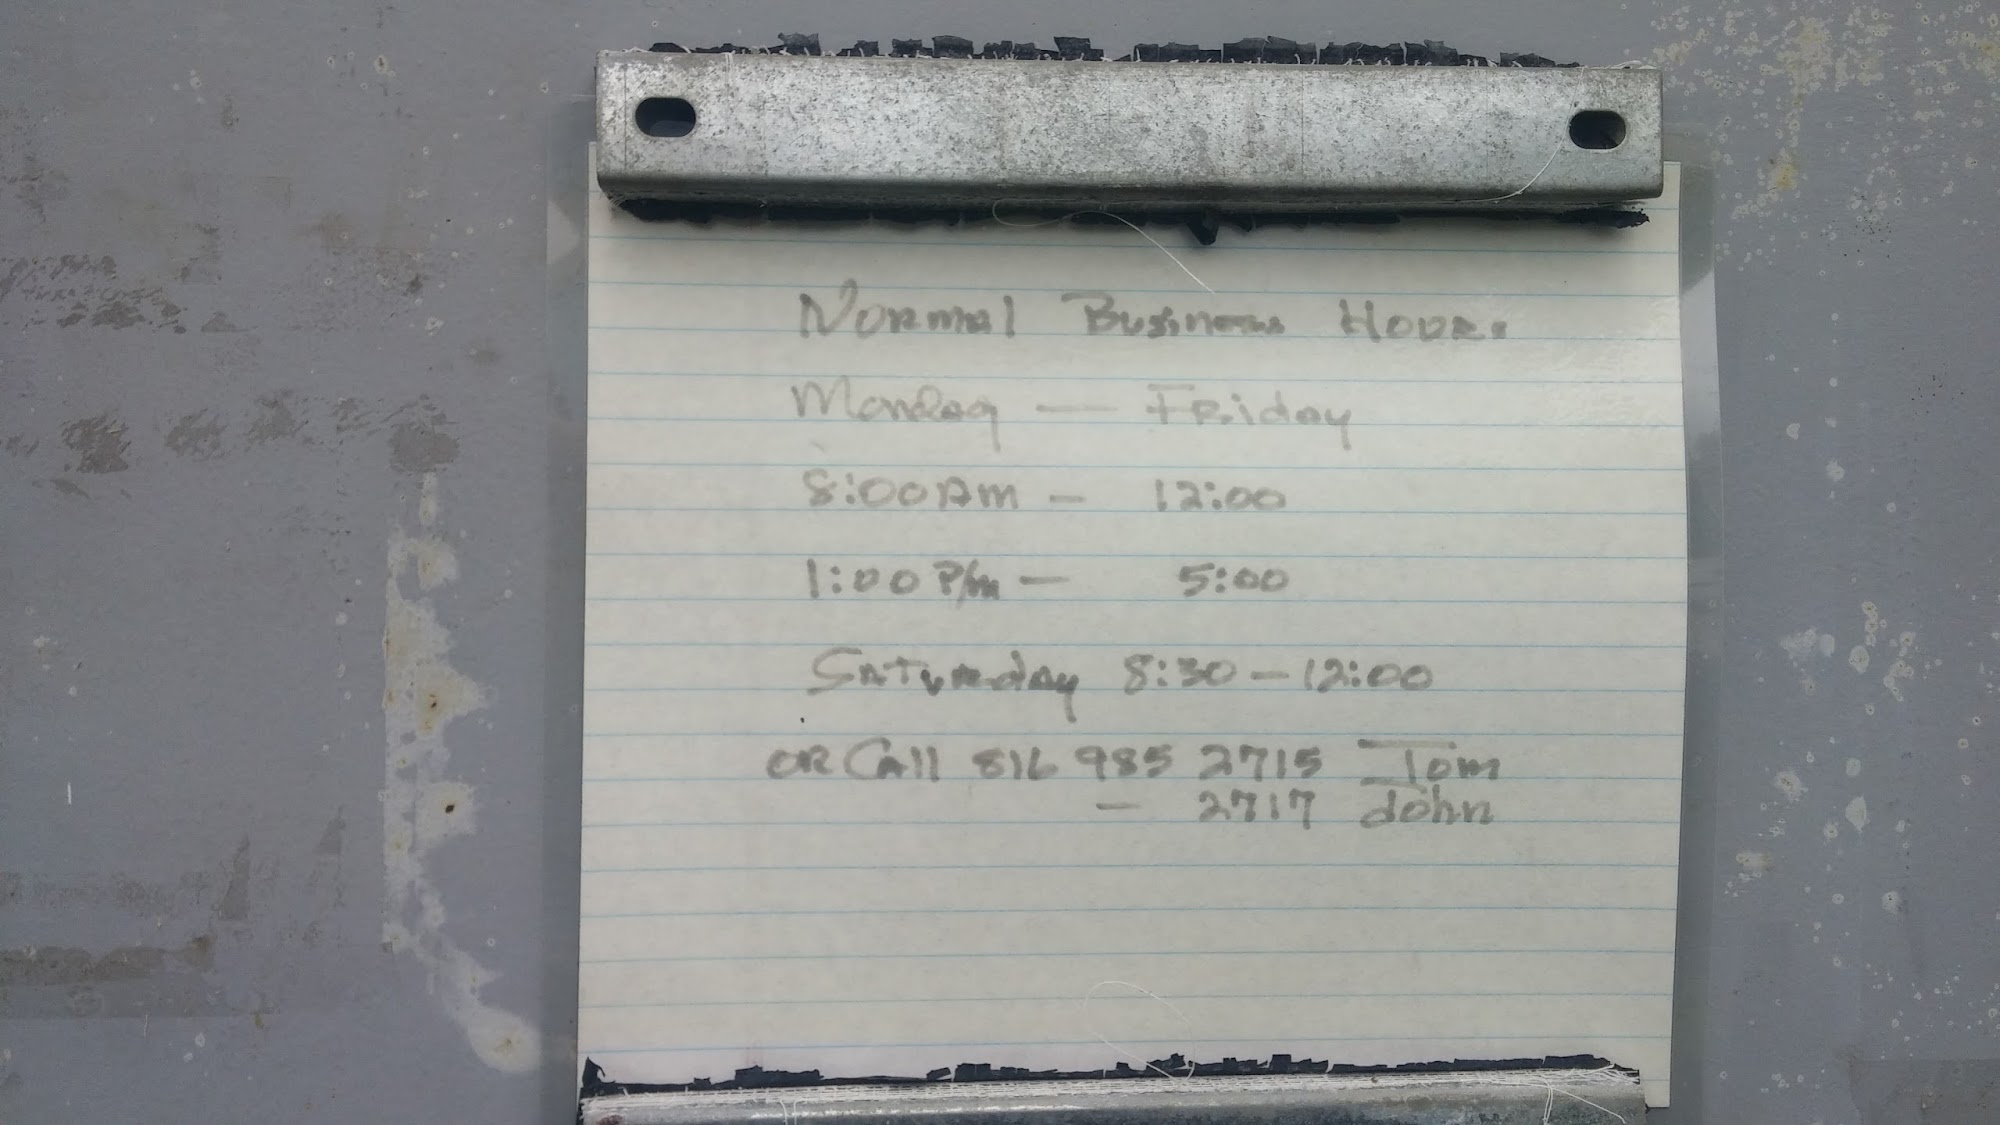 Normal Business Hours
Monday — Friday
8:00 AM — 12:00
1:00 P/m — 5:00
Saturday 8:30 — 12:00
OR Call 816 985 2715 Tom
— 2717 John